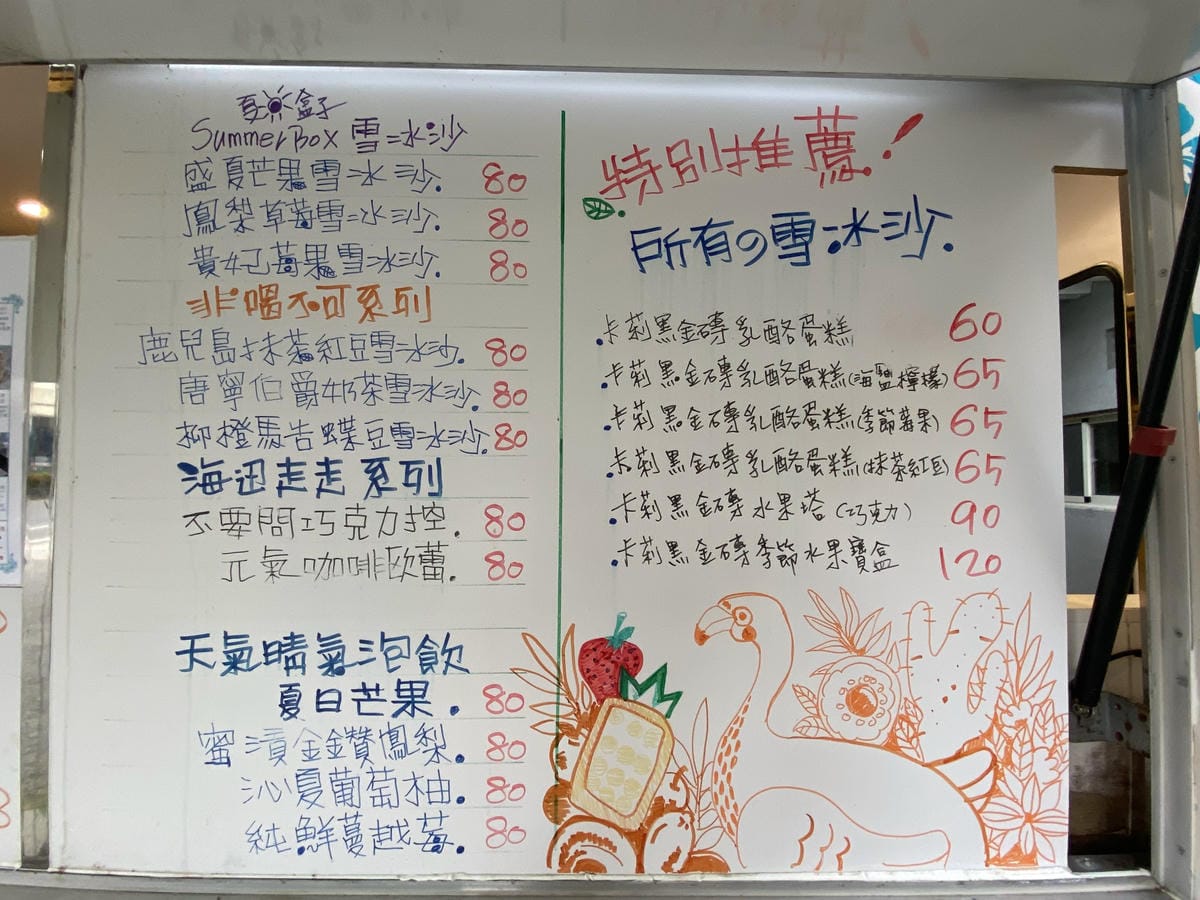 夏日盒子
SummerBox 雪冰沙
盛夏芒果雪冰沙. 80
鳳梨草莓雪冰沙. 80
貴妃莓果雪冰沙. 80
非喝不可系列
鹿兒島抹茶紅豆雪冰沙. 80
唐寧伯爵奶茶雪冰沙. 80
柳橙馬告蝶豆雪冰沙. 80
海迅走走系列
不要問巧克力控. 80
元氣咖啡欧蕾. 80
天氣晴氣泡飲
夏日芒果. 80
蜜漬金鑽鳳梨. 80
沁夏葡萄柚. 80
純鮮蔓越莓. 80
特別推薦!
所有の雪冰沙.
.卡莉黑金磚乳酪蛋糕 60
.卡莉黑金磚乳酪蛋糕(海鹽檸檬) 65
.卡莉黑金磚乳酪蛋糕(季節莓果) 65
.卡莉黑金磚乳酪蛋糕(抹茶紅豆) 65
.卡莉黑金磚水果塔(巧克力) 90
.卡莉黑金磚季節水果寶盒 120